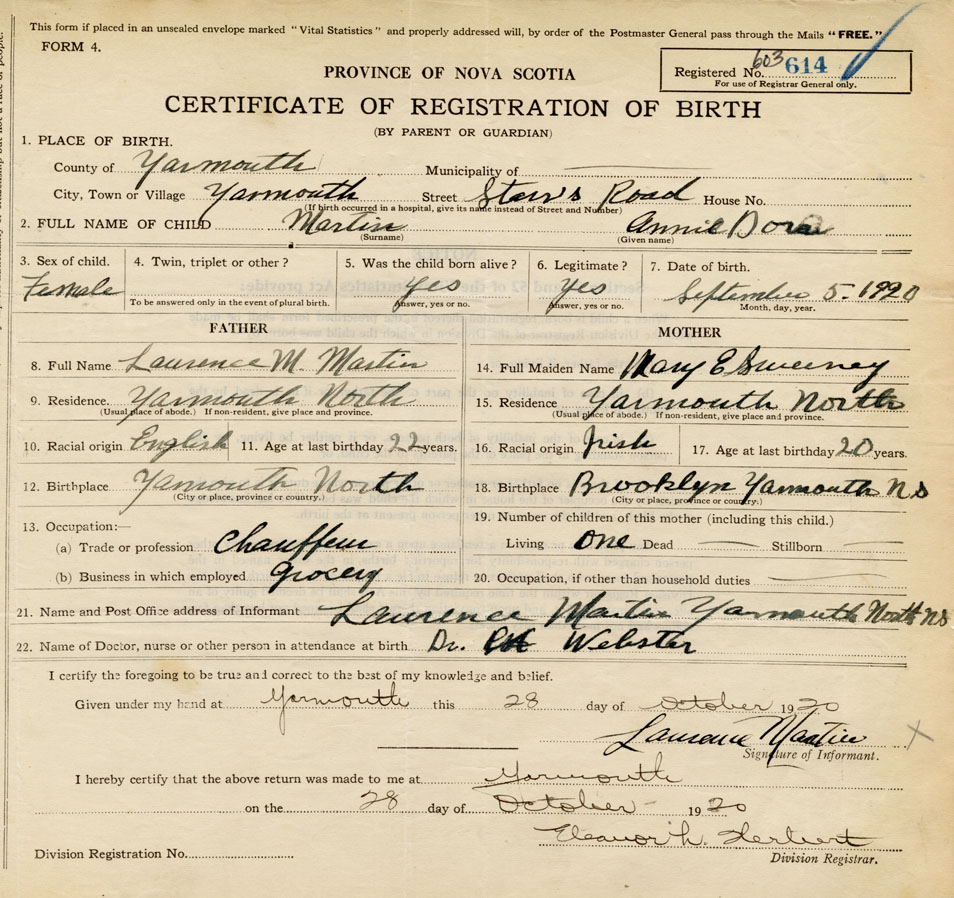 This form if placed in an unsealed envelope marked "Vital Statistics" and properly addressed will, by order of the Postmaster General pass through the Mails "FREE."
FORM 4.
603 614
Registered No.
For use of Registrar General only.
PROVINCE OF NOVA SCOTIA
CERTIFICATE OF REGISTRATION OF BIRTH
(BY PARENT OR GUARDIAN)
1. PLACE OF BIRTH.
County of Yarmouth Municipality of
City, Town or Village Yarmouth Street Starr's Road House No.
(If birth occurred in a hospital, give its name instead of Street and Number)
2. FULL NAME OF CHILD Martin Annie Dora
(Surname) (Given name)
3. Sex of child. 4. Twin, triplet or other? 5. Was the child born alive? 6. Legitimate? 7. Date of birth.
Female Yes Yes September 5. 1920
To be answered only in the event of plural birth. Answer, yes or no. Answer, yes or no. Month, day, year.
FATHER MOTHER
8. Full Name Laurence M. Martin 14. Full Maiden Name Mary E Sweeney
9. Residence. Yarmouth North 15. Residence Yarmouth North
(Usual place of abode.) If non-resident, give place and province. (Usual place of abode.) If non-resident, give place and province.
10. Racial origin English 11. Age at last birthday 22 years. 16. Racial origin Irish 17. Age at last birthday 20 years.
12. Birthplace Yarmouth North 18. Birthplace Brooklyn Yarmouth N S
(City or place, province or country.) (City or place, province or country.)
13. Occupation:— 19. Number of children of this mother (including this child.)
(a) Trade or profession Chauffeur Living One Dead Stillborn
(b) Business in which employed Grocery 20. Occupation, if other than household duties
21. Name and Post Office address of Informant Laurence Martin Yarmouth North NS
22. Name of Doctor, nurse or other person in attendance at birth Dr. Webster
I certify the foregoing to be true and correct to the best of my knowledge and belief.
Given under my hand at Yarmouth this 28 day of October 1920
Laurence Martin
Signature of Informant.
I hereby certify that the above return was made to me at Yarmouth
on the 28 day of October 1920
Eleanor L. Herbert
Division Registration No. Division Registrar.